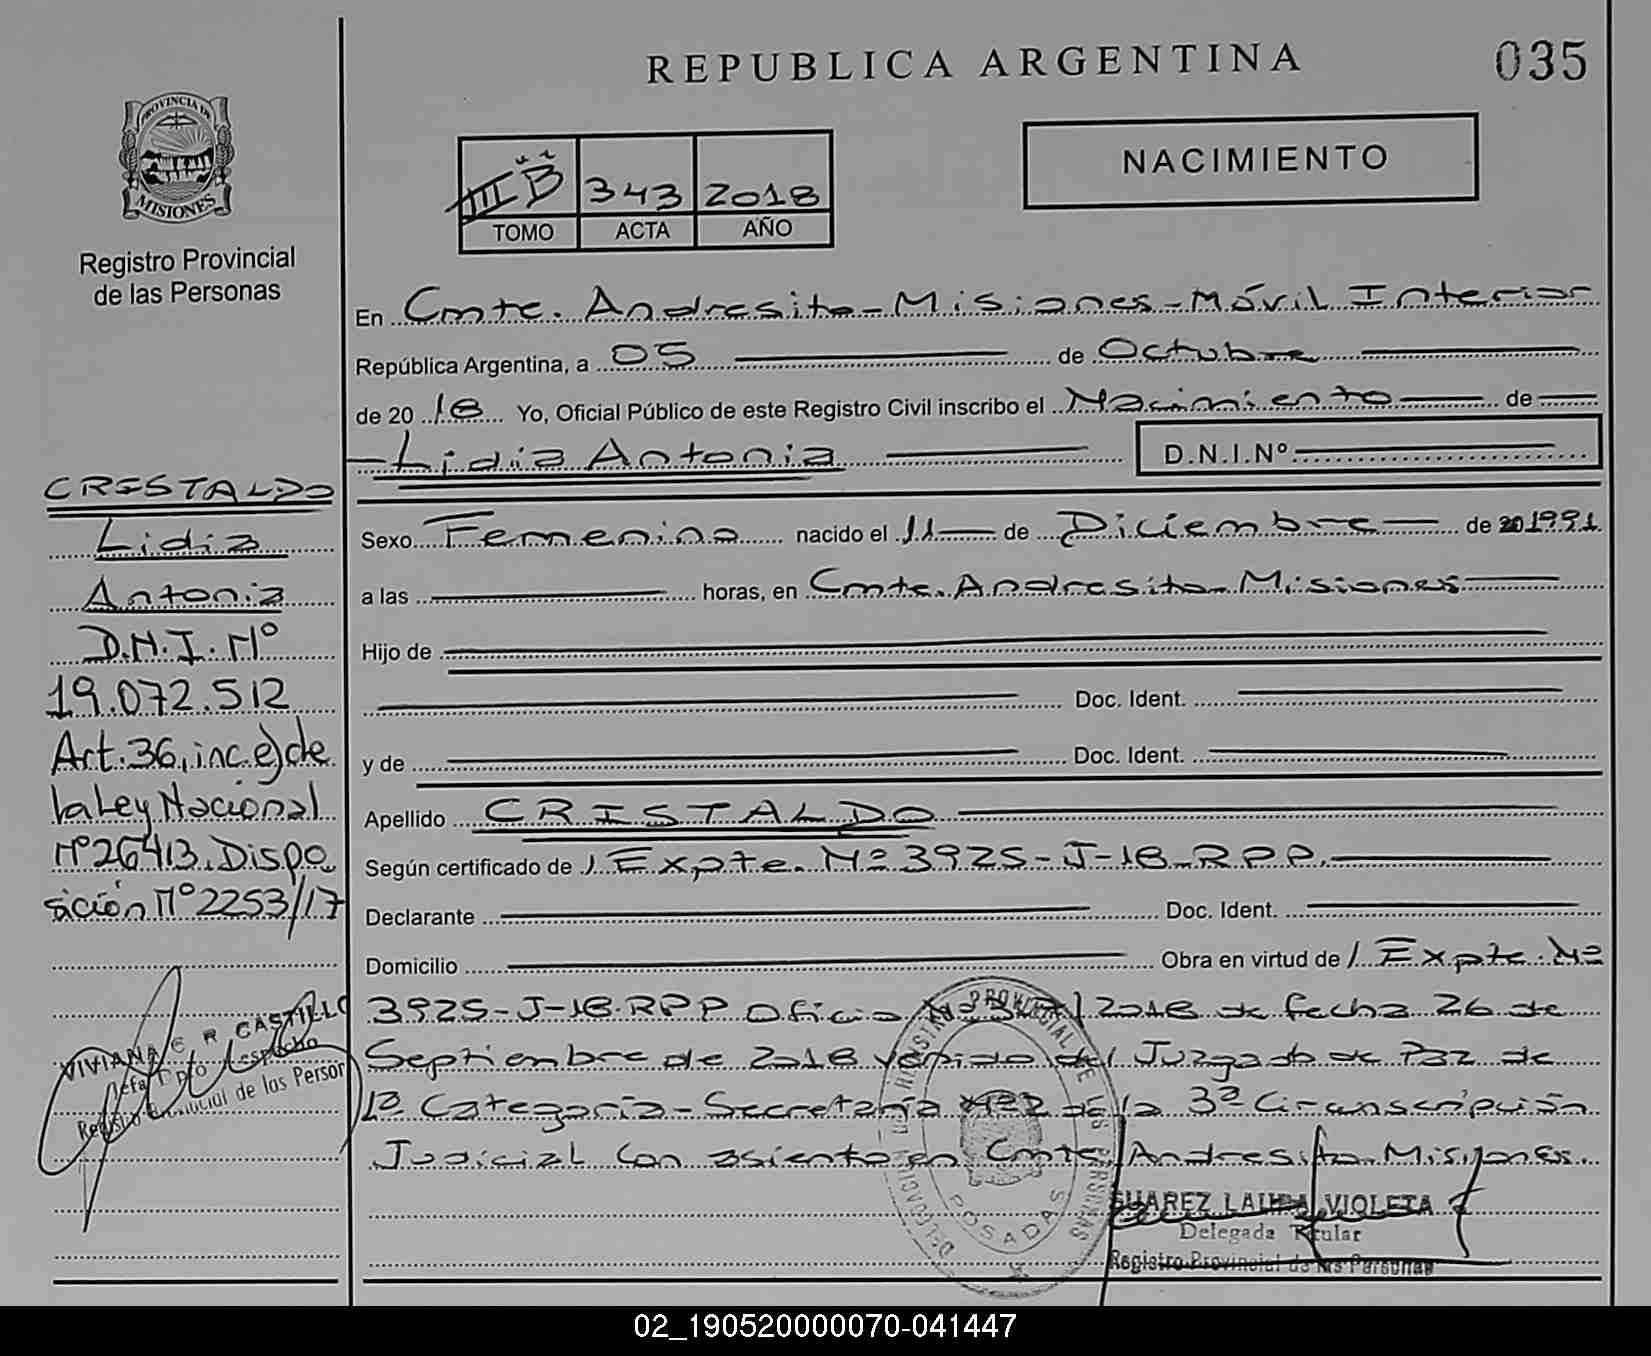 REPUBLICA ARGENTINA
035
PROVINCIA DE
MISIONES
Registro Provincial
de las Personas
NACIMIENTO
III B 343 2018
TOMO ACTA AÑO
En Cmte. Andresito-Misiones-Móvil Interior
República Argentina, a 05 de Octubre
de 2018 Yo, Oficial Público de este Registro Civil inscribo el Nacimiento de
Lidia Antonia
D.N.I.Nº
Sexo Femenino nacido el 11 de Diciembre de 20 1991.
a las horas, en Cmte. Andresito-Misiones
Hijo de
Doc. Ident.
y de Doc. Ident.
Apellido CRISTALDO
Según certificado de / Expte. Nº 3925-J-18-RPP.
Declarante Doc. Ident.
Domicilio Obra en virtud de / Expte. Nº
3925-J-18-RPP Oficio Nº /2018 de fecha 26 de
Septiembre de 2018 venido del Juzgado de Paz de
1ª Categoria-Secretaría Nº2 de la 3ª Circunscripción
Judicial con asiento en Cmte. Andresito-Misiones.
CRISTALDO
Lidia
Antonia
D.N.I. Nº
19.072.512
Art.36, inc.e) de
la Ley Nacional
Nº26413. Dispo
sición Nº2253/17
VIVIANA E R CASTILLO
Jefa Dpto Despacho
Registro Provincial de las Person
REGISTRO PROVINCIAL DE LAS PERSONAS
DELEGACION
POSADAS
SUAREZ LAURA VIOLETA
Delegada Titular
Registro Provincial de las Personas
02_190520000070-041447